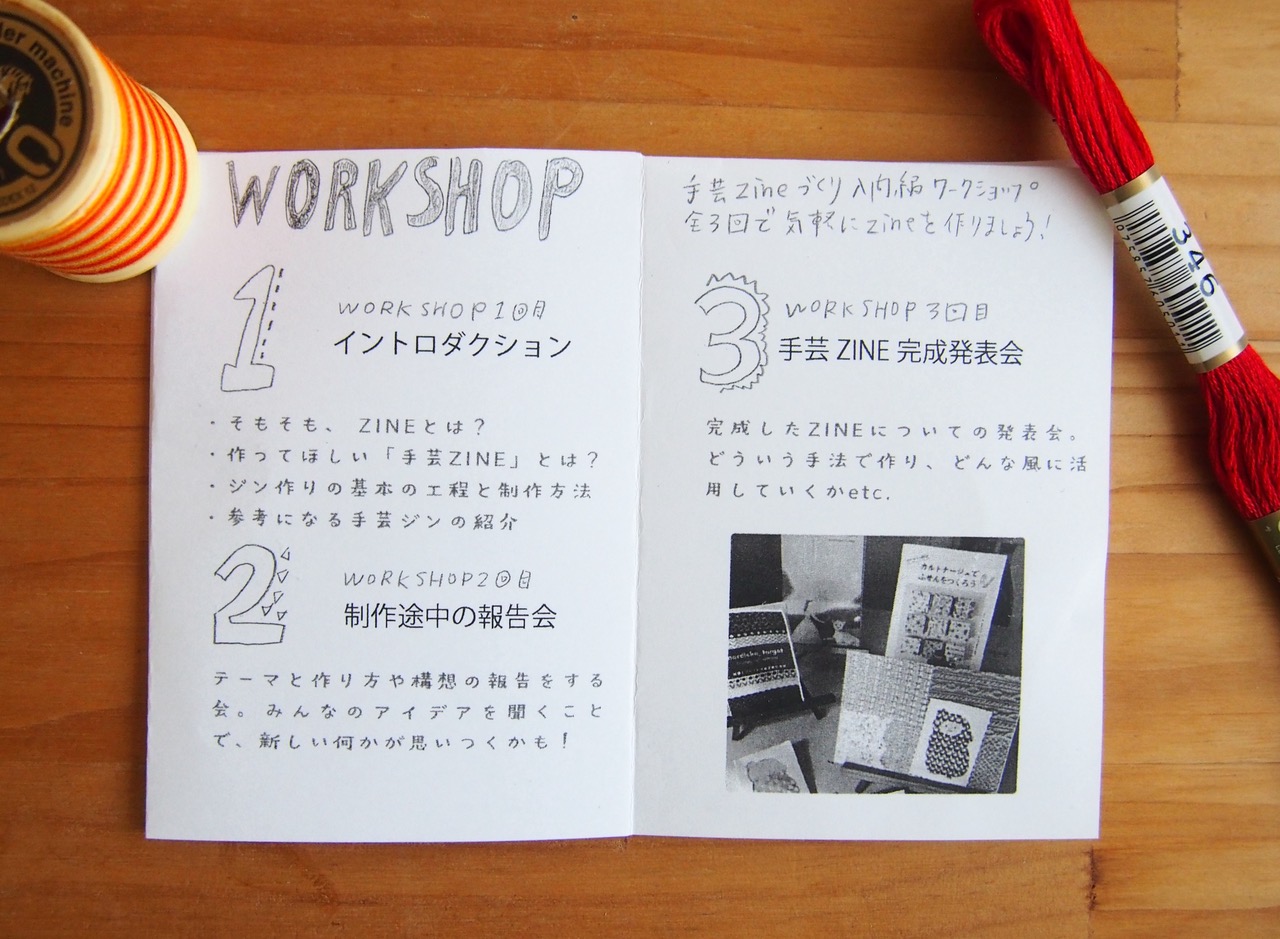 WORKSHOP
WORKSHOP1回目
イントロダクション
・そもそも、 ZINEとは?
・作ってほしい「手芸ZINE」とは?
・ジン作りの基本の工程と制作方法
・参考になる手芸ジンの紹介
WORKSHOP2回目
制作途中の報告会
テーマと作り方や構想の報告をする
会。みんなのアイデアを聞くこと
で、新しい何かが思いつくかも!
手芸zineづくり入門編ワークショップ。
全3回で気軽にzineを作りましょう!
WORKSHOP3回目
手芸 ZINE 完成発表会
完成したZINEについての発表会。
どういう手法で作り、どんな風に活
用していくかetc.
カルトナージュで
ふせんをつくろう
machine
346
1
2
3